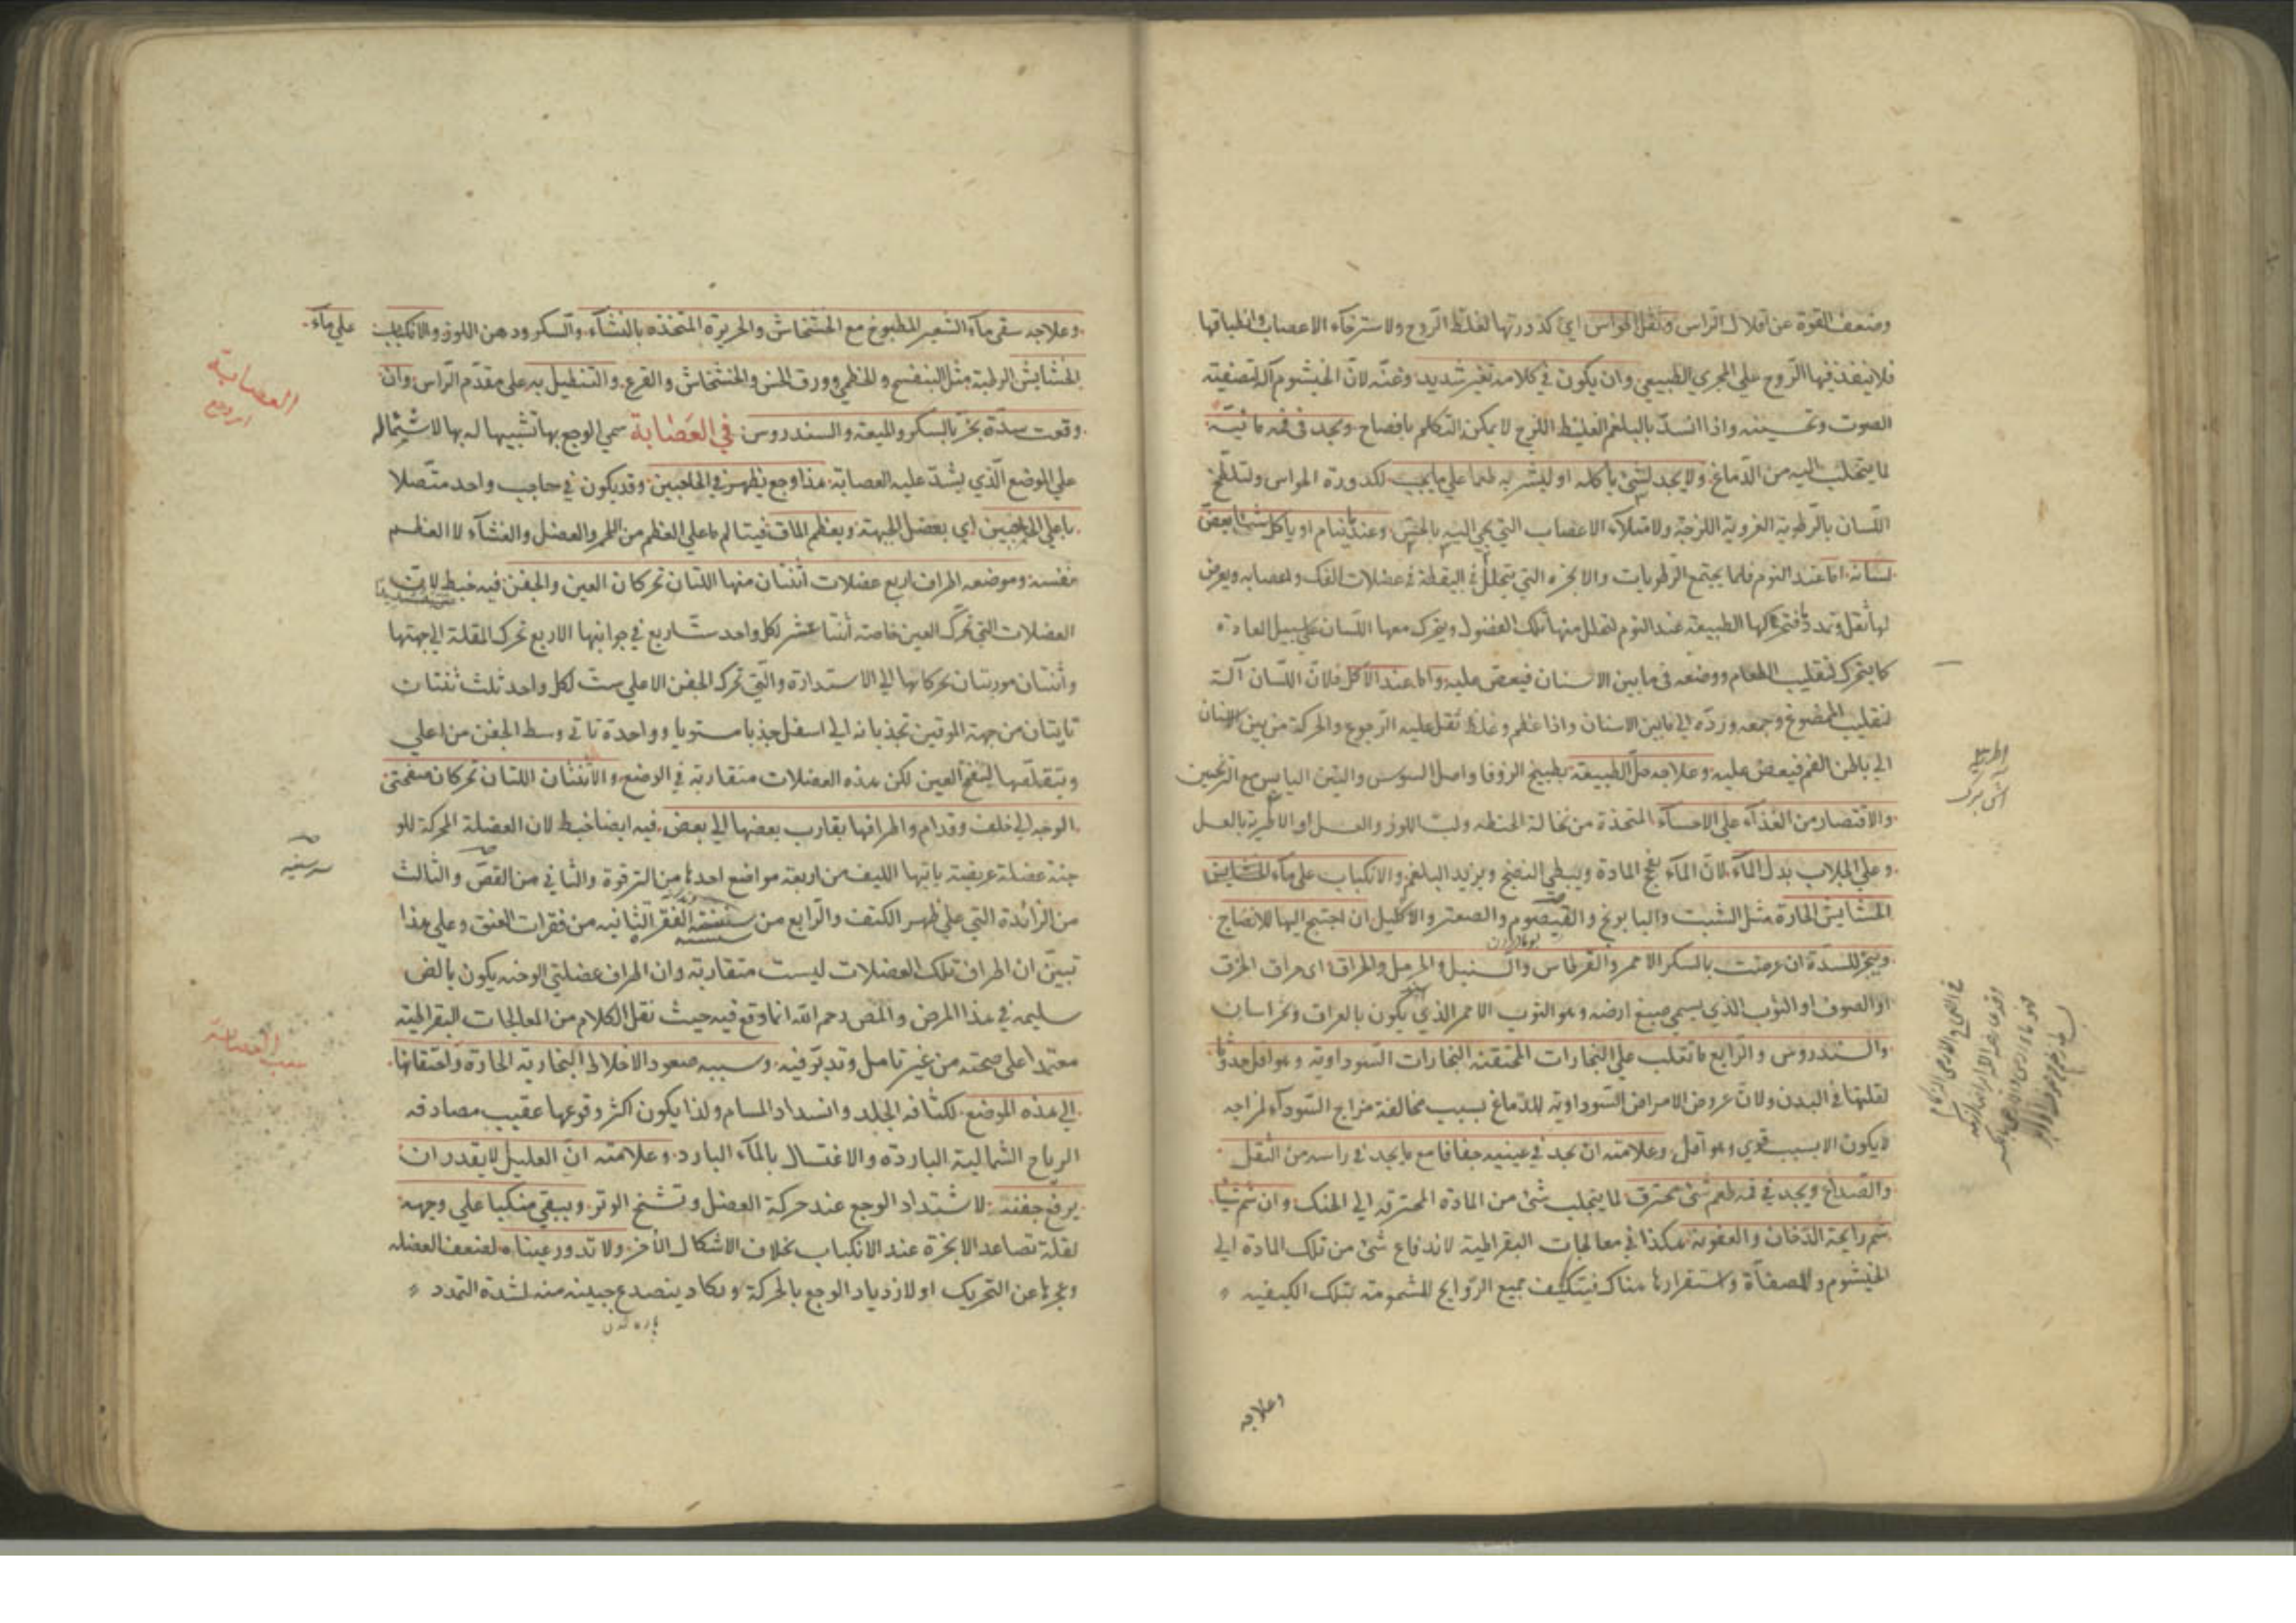 وضعف القوة عن اقلال الراس وثقل الحواس اي كدورتها لغلظ الروح ولاسترخاء الاعصاب وانطباقها
فلا ينفذ فيها الروح علي المجري الطبيعي وان يكون في كلامه تغير شديد وغنّه لانّ الخيشوم آلة لتصفيته
الصوت وتحسينه واذا انسدّ بالبلغم الغليظ اللزج لا يمكن التكلم بافصاح ويجد في فمه مائيّة
لما يتحلب اليه من الدّماغ ولا يجد لشئ ياكله او يشربه طعما علي ما يجب لكدورة الحواس ولتلطخ
اللّسان بالرّطوبة الغروية اللزجة ولامتلاء الاعصاب التي يجي اليه بالحس وعندما ينام او ياكل شيئا يعضّ
لسانه اما عند النوم فلما يجتمع الرطوبات والابخرة التي يتحلل في اليقظة في عضلات الفك واعصابه ويعرض
لها ثقل وتمدد فتحركها الطبيعة عند النوم لتحلل منها تلك الفضول ويتحرك معها اللّسان علي سبيل العادة
كما يتحرك لتقليب الطعام ووضعه في ما بين الاسنان فيعض عليه واما عند الاكل فلانّ اللّسان آلة
لتقليب الممضوغ وجمعه وردّه الي ما بين الاسنان واذا عظم وغلظ ثقل عليه الرجوع والحركة من بين الاسنان
الي باطن الفم فيعض عليه وعلاجه حلّ الطبيعة بطبيخ الزوفا واصل السوس والتين اليابس مع الترنجبين
والاقتصار من الغذاء علي الاحساء المتخذة من نخالة الحنطه ولبّ اللوز والعسل او الاطرية بالعسل
وعلي الجلاب بدل الماء لانّ الماء يفج المادة ويبطي النضج ويزيد البلغم والانكباب علي ماء الحشايش
الحشايش الحارة مثل الشبت والبابونج والقيصوم والصعتر والاكليل ان احتيج اليها للانضاج
ويبخر للسدّة ان عرضت بالسكر الاحمر والقرطاس والسنبل والحرمل والحراق اي حراق الخرق
او الصوف او الثوب الذي يسمي صبغ ارضه وهو الثوب الاحمر الذي يكون بالعراق وخراسان
والسندروس والرّابع ما تغلب علي البخارات المحتقنه البخارات السّوداوية وهو اقل حدوثا
لقلتها في البدن ولانّ عروض الامراض السّوداوية للدّماغ بسبب مخالفة مزاج السّوداء لمزاجه
لا يكون الا بسبب قوي وهو اقل وعلامته ان يجد في عينيه جفافا مع ما يجد في راسه من الثقل
والصّداع ويجد في فمه طعم شئ محترق لما يتحلب شئ من المادة المحترقه الي الحنك وان شم شيئا
شم رايحة الدّخان والعفونة هكذا في معالجات البقراطية لاندفاع شئ من تلك المادة الي
الخيشوم والمصفاة واستقرارها هناك فيتكيف جميع الرّوايح المشمومة بتلك الكيفيه
وعلاجه
وعلاجه سقي ماء الشعير المطبوخ مع الخشخاش والحريرة المتخذه بالنشاء والسكر ودهن اللوز والانكباب علي ماء
الحشايش الرطبة مثل البنفسج والخطمي وورق الخس والخشخاش والقرع والتنطيل به علي مقدّم الراس وان
وقعت سدّة بخر بالسكر والميعة والسندروس في العصابة سمي الوجع بها تشبيها له بها لاشتماله
علي الموضع الّذي يشدّ عليه العصابة هذا وجع يظهر في الحاجبين وقد يكون في حاجب واحد متّصلا
باعلي الحاجبين اي بعضل الجبهة وبعظم الماق فيتالم ما علي العظم من اللحم والعضل والغشاء لا العظم
نفسه وموضعه اطراف اربع عضلات اثنتان منها اللتان تحركان العين والجفن فيه خبط لانّ
العضلات التي تحرّك العين خاصة اثنتا عشر لكل واحد ستّ اربع في جوانبها الاربع تحرك المقلة الي جهتها
واثنتان موربتان تحركانها الي الاستدارة والّتي تحرك الجفن الاعلي ست لكل واحد ثلث ثنتان
تايتان من جهة الموقين تجذبانه الي اسفل جذبا مستويا وواحدة تاتي وسط الجفن من اعلي
وبتقلصها لينفتح العين لكن هذه العضلات متقاربة في الوضع والاثنتان اللتان تحركان صفحتي
الوجه الي خلف وقدام واطرافها يقارب بعضها الي بعض فيه ايضا خبط لان العضلة المحركة للو
جنة عضلة عريضة ياتيها الليف من اربعة مواضع احدها من الترقوة والثاني من القصّ والثالث
من الزائدة التي علي ظهر الكتف والرّابع من سنسنة الفقر الثانيه من فقرات العنق وعلي هذا
تبيّن ان اطراف تلك العضلات ليست متقاربة وان اطراف عضلتي الوجنه يكون بالض
سليمه في هذا المرض والمص رحم الله انما وقع فيه حيث نقل الكلام من المعالجات البقراطية
معتمدا علي صحته من غير تامل وتدبّر فيه وسببه صعود الاخلاط البخارية الحارة واحتقانها
الي هذه الموضع لكثافه الجلد وانسداد المسام ولذا يكون اكثر وقوعها عقيب مصادفه
الرياح الشمالية الباردة والاغتسال بالماء البارد وعلامته انّ العليل لا يقدر ان
يرفع جفنه لاشتداد الوجع عند حركة العضل وتشنج الوتر ويبقي منكبا علي وجهه
لقلة تصاعد الابخرة عند الانكباب بخلاف الاشكال الأخر ولا تدور عيناه لضعف العضله
وعجزها عن التحريك او لازدياد الوجع بالحركة ويكاد ينصدع جبينه منه لشدة التمدد
العصابة
سبب العصابة